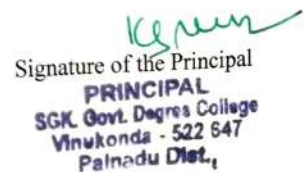 Signature of the Principal
PRINCIPAL
SGK. Govt. Degree College
Vinukonda - 522 647
Palnadu Dist.,